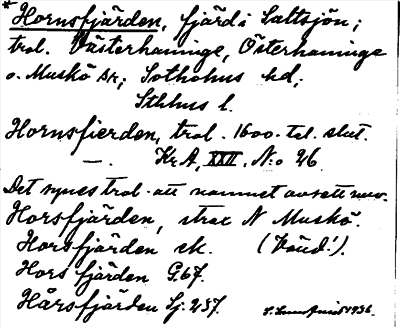 * Hornsfjärden, fjärd i Saltsjön;
trol. Västerhaninge, Österhaninge
o. Muskö snr; Sotholms hd;
Sthlms l.
Hornsfierden, trol. 1600-tal. slut.
—. Kr.A, XXII. N:o 26
Det synes trol. att namnet avsett nuv.
Horsfjärden, strax N Muskö.
Horsfjärden ek. (Vänd!).
Hors fjärden G.67.
Hårsfjärden Sj. 237.
1936.